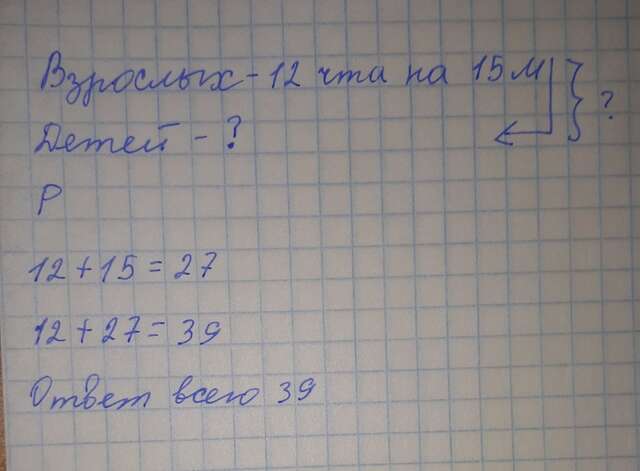 Взрослых - 12 чта на 15 м ?
Детей - ?
Р
12 + 15 = 27
12 + 27 = 39
Ответ всего 39